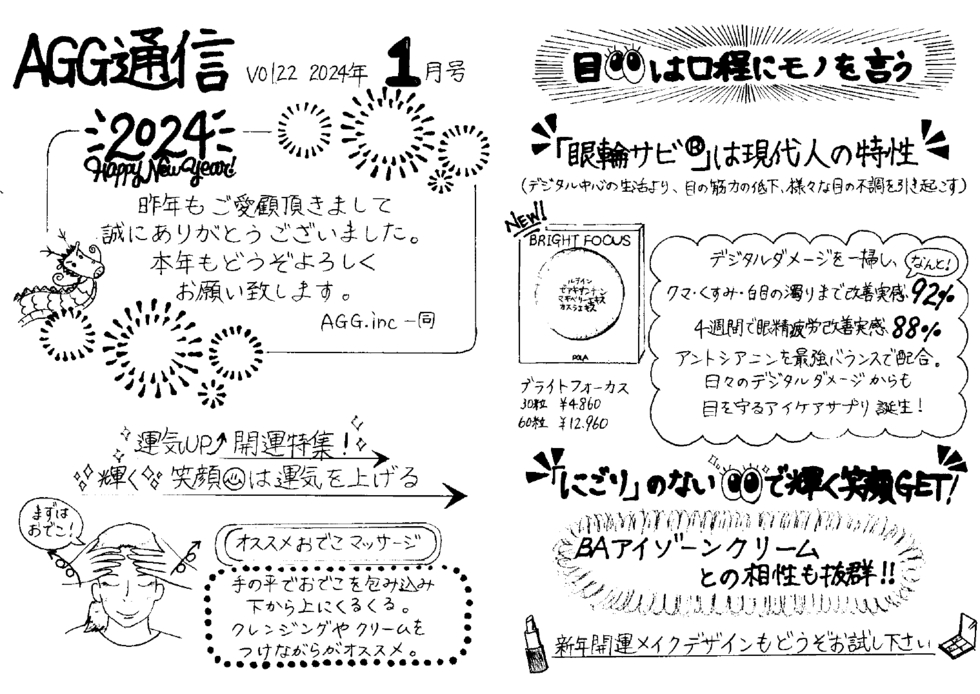 AGG通信 Vol22 2024年 1月号
2024
Happy New Year!
昨年もご愛顧頂きまして
誠にありがとうございました。
本年もどうぞよろしく
お願い致します。
AGG.inc 一同
運気UP↑開運特集!
輝く笑顔は運気を上げる
まずは
おでこ!
オススメおでこマッサージ
手の平でおでこを包み込み
下から上にくるくる。
クレンジングやクリームを
つけながらがオススメ。
目は口程にモノを言う
「眼輪サビ®」は現代人の特性
(デジタル中心の生活より、目の筋力の低下、様々な目の不調を引き起こす)
NEW!
BRIGHT FOCUS
ルテイン
ゼアキサンチン
マキベリーエキス
カスラエキス
POLA
ブライトフォーカス
30粒 ¥4.860
60粒 ¥12.960
デジタルダメージを一掃し、なんと!
クマ・くすみ・白目の濁りまで改善実感、92%
4週間で眼精疲労改善実感、88%
アントシアニンを最強バランスで配合。
日々のデジタルダメージからも
目を守るアイケアサプリ誕生!
「にごり」のない で輝く笑顔GET!
BAアイゾーンクリーム
との相性も抜群!!
新年開運メイクデザインもどうぞお試し下さい